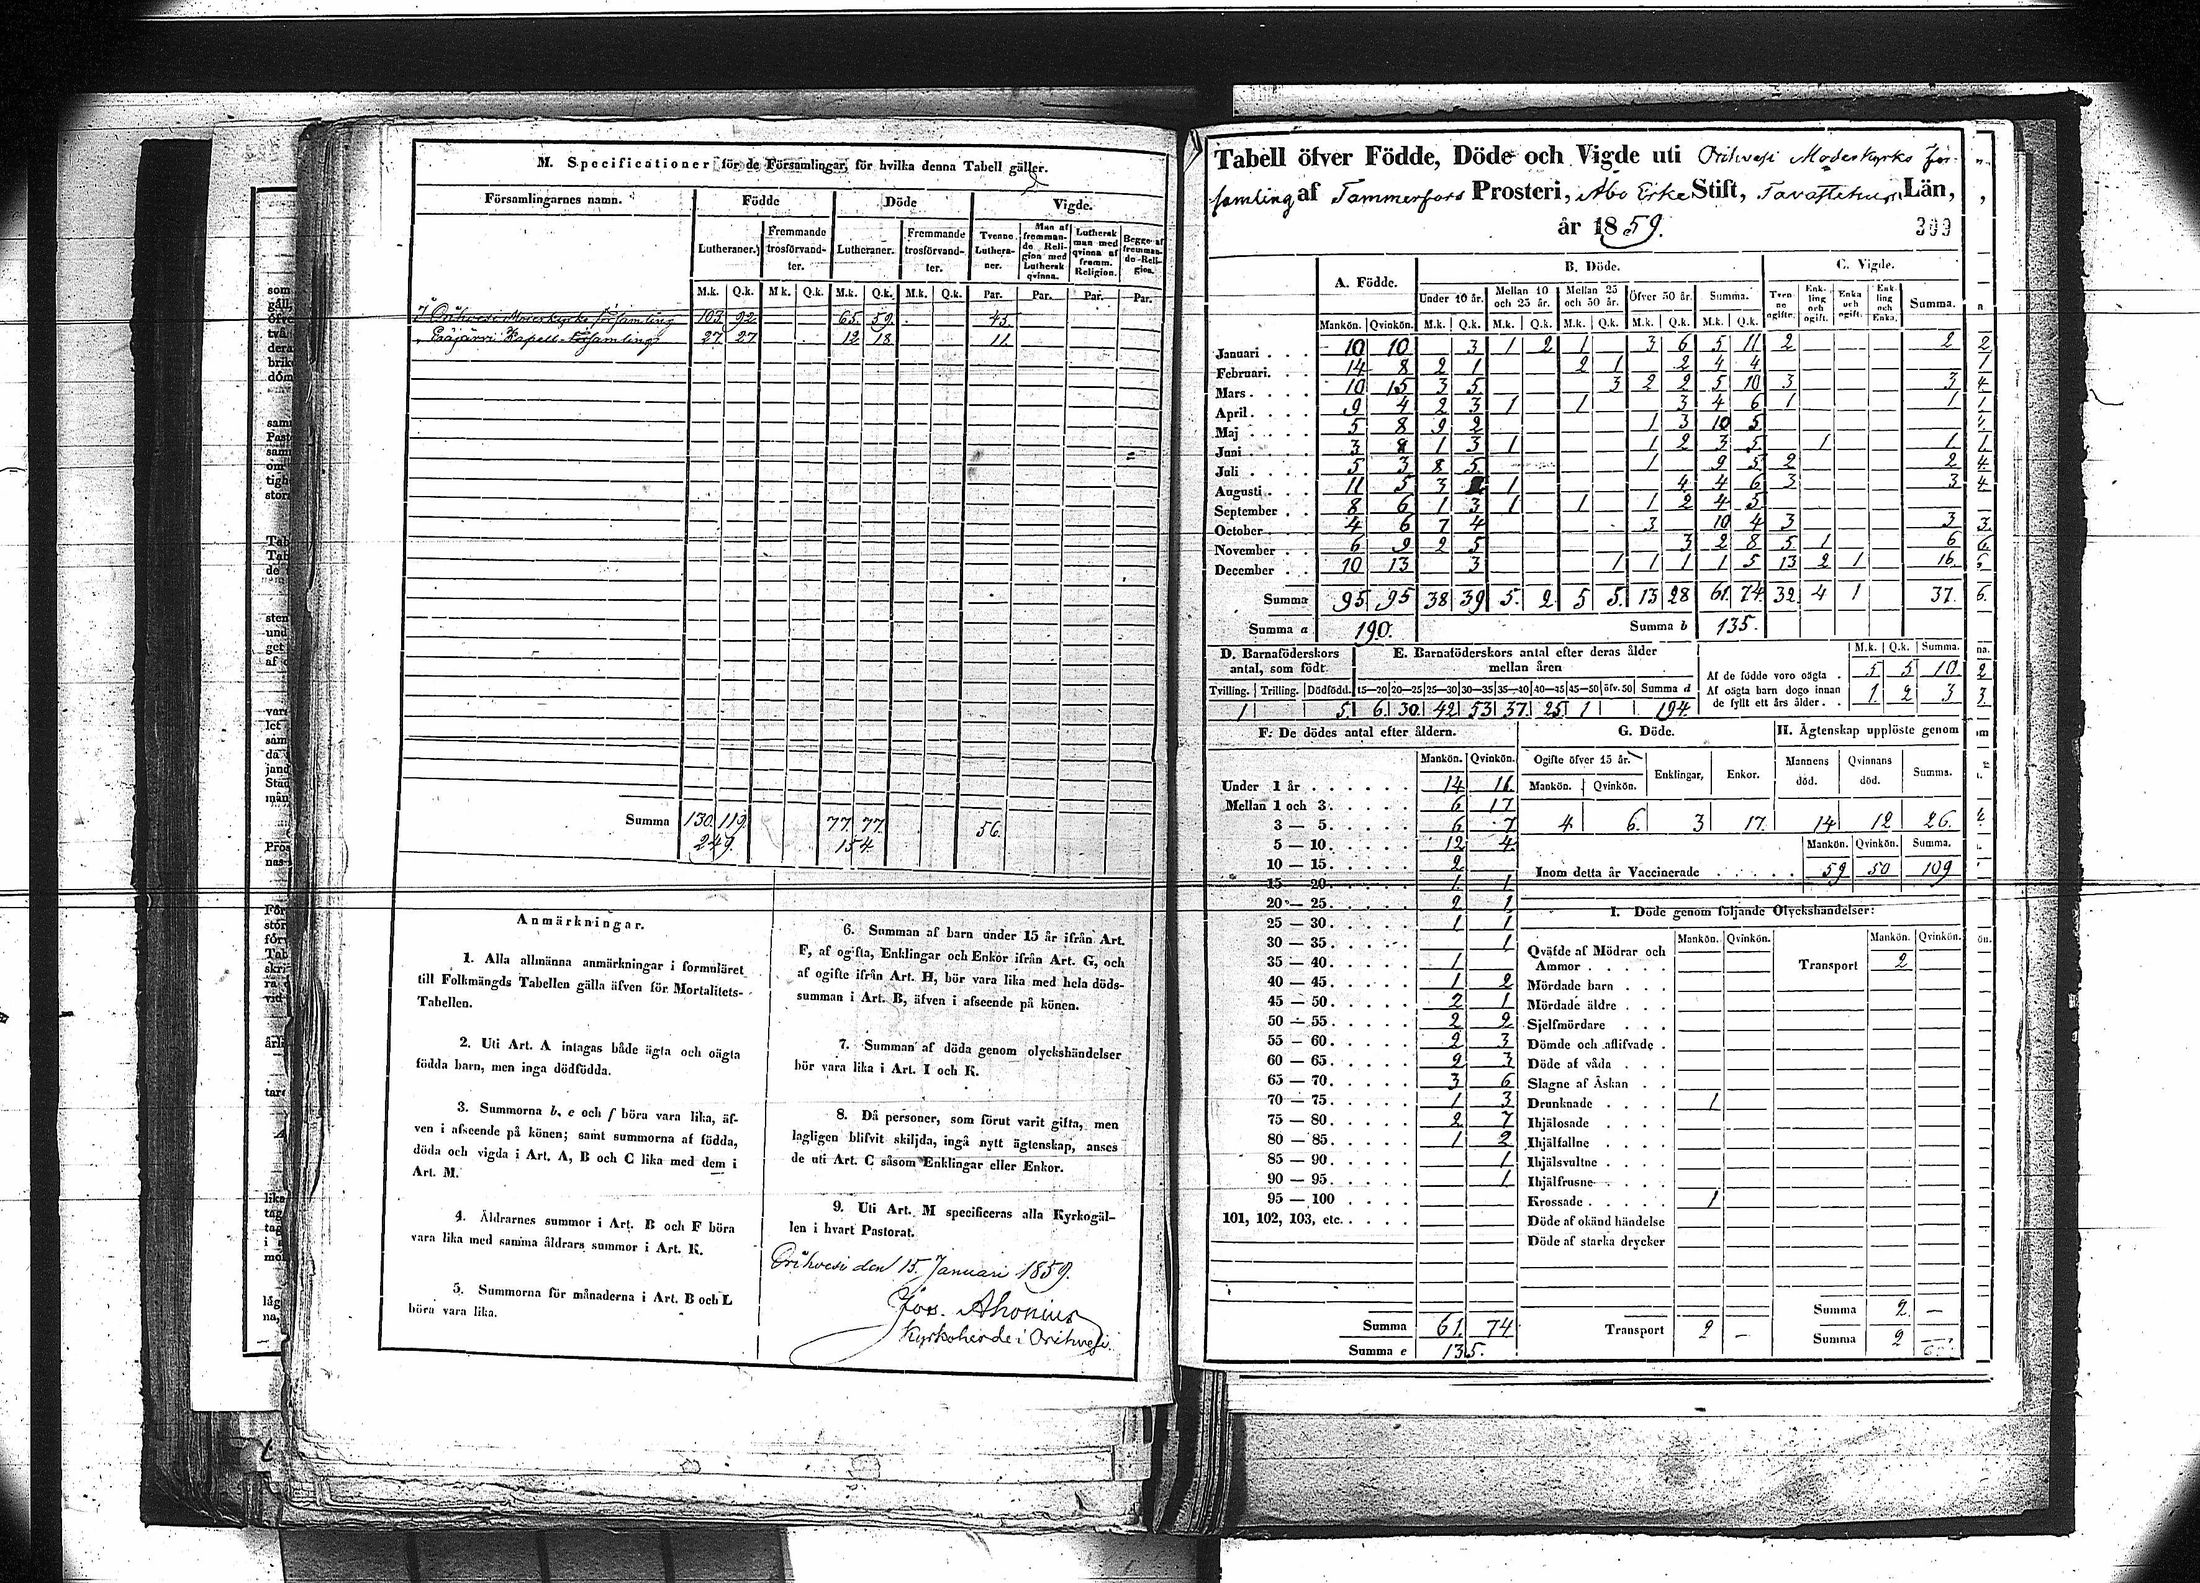 M. Specificationer för de Församlingar, för hvilka denna Tabell gäller.
Församlingarnes namn. Födde Döde Vigde.
Lutheraner. Fremmande trosförvandter. Lutheraner. Fremmande trosförvandter. Tvenne Lutheraner. Man af fremmande Religion med Luthersk qvinna. Luthersk man med qvinna af fremm. Religion. Begge af fremmande Religion.
M.k. Q.k. M.k. Q.k. M.k. Q.k. M.k. Q.k. Par. Par. Par. Par.
I Orihvesi Moderkyrko församling 103 92 65 59 45.
" Eräjärvi Kapell-församling 27 27 12 18 11.
Summa 130. 119. 77. 77. 56.
249. 154.
Anmärkningar.
1. Alla allmänna anmärkningar i formuläret
till Folkmängds Tabellen gälla äfven för Mortalitets-
Tabellen.
2. Uti Art. A intagas både ägta och oägta
födda barn, men inga dödfödda.
3. Summorna b, e och f böra vara lika, äf-
ven i afseende på könen; samt summorna af födda,
döda och vigda i Art. A, B och C lika med dem i
Art. M.
4. Åldrarnes summor i Art. B och F böra
vara lika med samma åldrars summor i Art. K.
5. Summorna för månaderna i Art. B och L
böra vara lika.
6. Summan af barn under 15 år ifrån Art.
F, af ogifta, Enklingar och Enkor ifrån Art. G, och
af ogifte ifrån Art. H, bör vara lika med hela döds-
summan i Art. B, äfven i afseende på könen.
7. Summan af döda genom olyckshändelser
bör vara lika i Art. I och K.
8. Då personer, som förut varit gifta, men
lagligen blifvit skiljda, ingå nytt ägtenskap, anses
de uti Art. C såsom Enklingar eller Enkor.
9. Uti Art. M specificeras alla Kyrkogäl-
len i hvart Pastorat.
Orihvesi den 15. Januari 1859.
Jos. Ahonius
Kyrkoherde i Orihvesi.
Tabell öfver Födde, Döde och Vigde uti Orihvesi Moderkyrko För-
samling af Tammerfors Prosteri, Åbo Erke Stift, Tavastehus Län,
år 1859. 399
A. Födde. B. Döde. C. Vigde.
Under 10 år. Mellan 10 och 25 år. Mellan 25 och 50 år. Öfver 50 år. Summa. Tvenne ogifte. Enkling och ogift. Enka och ogift. Enkling och Enka. Summa.
Mankön. Qvinkön. M.k. Q.k. M.k. Q.k. M.k. Q.k. M.k. Q.k. M.k. Q.k.
Januari 10 10 3 1 2 1 3 6 5 11 2 2
Februari 14 8 2 1 2 1 2 4 4
Mars 10 15 3 5 3 2 2 5 10 3 3
April 9 4 2 3 1 1 3 4 6 1 1
Maj 5 8 9 2 1 3 10 5
Juni 3 8 1 3 1 1 2 3 5 1 1
Juli 5 3 8 5 1 9 5 2 2
Augusti 11 5 3 1 4 4 6 3 3
September 8 6 1 3 1 1 1 2 4 5
October 4 6 7 4 3 10 4 3 3
November 6 9 2 5 3 2 8 5 1 6
December 10 13 3 1 1 1 1 5 13 2 1 16
Summa 95 95 38 39 5. 2 5 5. 13 28 61. 74. 32. 4 1 37.
Summa a 190. Summa b 135.
D. Barnaföderskors antal, som födt. E. Barnaföderskors antal efter deras ålder mellan åren M.k. Q.k. Summa.
Af de födde voro oägta 5 5 10
Af oägta barn dogo innan de fyllt ett års ålder 1 2 3
Tvilling. Trilling. Dödfödd. 15—20 20—25 25—30 30—35 35—40 40—45 45—50 öfv. 50 Summa d
1 5. 6. 30. 42 53 37. 25 1 194.
F. De dödes antal efter åldern. G. Döde. H. Ägtenskap upplöste genom
Mankön. Qvinkön. Ogifte öfver 15 år. Mankön. Qvinkön. Enklingar, Enkor. Mannens död. Qvinnans död. Summa.
4. 6. 3 17. 14 12 26.
Mankön. Qvinkön. Summa.
Inom detta år Vaccinerade 59 50 109
Under 1 år 14 11.
Mellan 1 och 3 6 17
3 — 5 6 7
5 — 10 12 4
10 — 15 2
15 — 20 1 1
20 — 25 2 1
25 — 30 1 1
30 — 35 1
35 — 40 1
40 — 45 1 2
45 — 50 2 1
50 — 55 2 2
55 — 60 2 3
60 — 65 2 3
65 — 70 3 6
70 — 75 1 3
75 — 80 2 7
80 — 85 1 2
85 — 90 1
90 — 95 1
95 — 100
101, 102, 103, etc.
Summa 61. 74
Summa e 135.
I. Döde genom följande Olyckshändelser:
Mankön. Qvinkön. Mankön. Qvinkön.
Qväfde af Mödrar och Ammor Transport 2
Mördade barn
Mördade äldre
Sjelfmördare
Dömde och aflifvade
Döde af våda
Slagne af Åskan
Drunknade 1
Ihjälosade
Ihjälfallne
Ihjälsvultne
Ihjälfrusne
Krossade 1
Döde af okänd händelse
Döde af starka drycker
Summa 2. —
Transport 2 — Summa 2